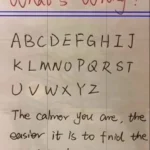 What's Wrong?
ABCDEFGHIJ
KLMNOPQRST
UVWXYZ
The calmer you are, the
easier it is to find the